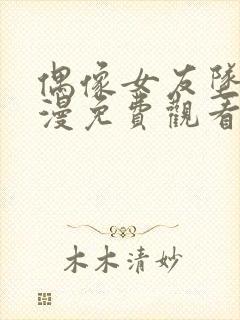 偶像女友墜
漫免費觀看
木木清妙